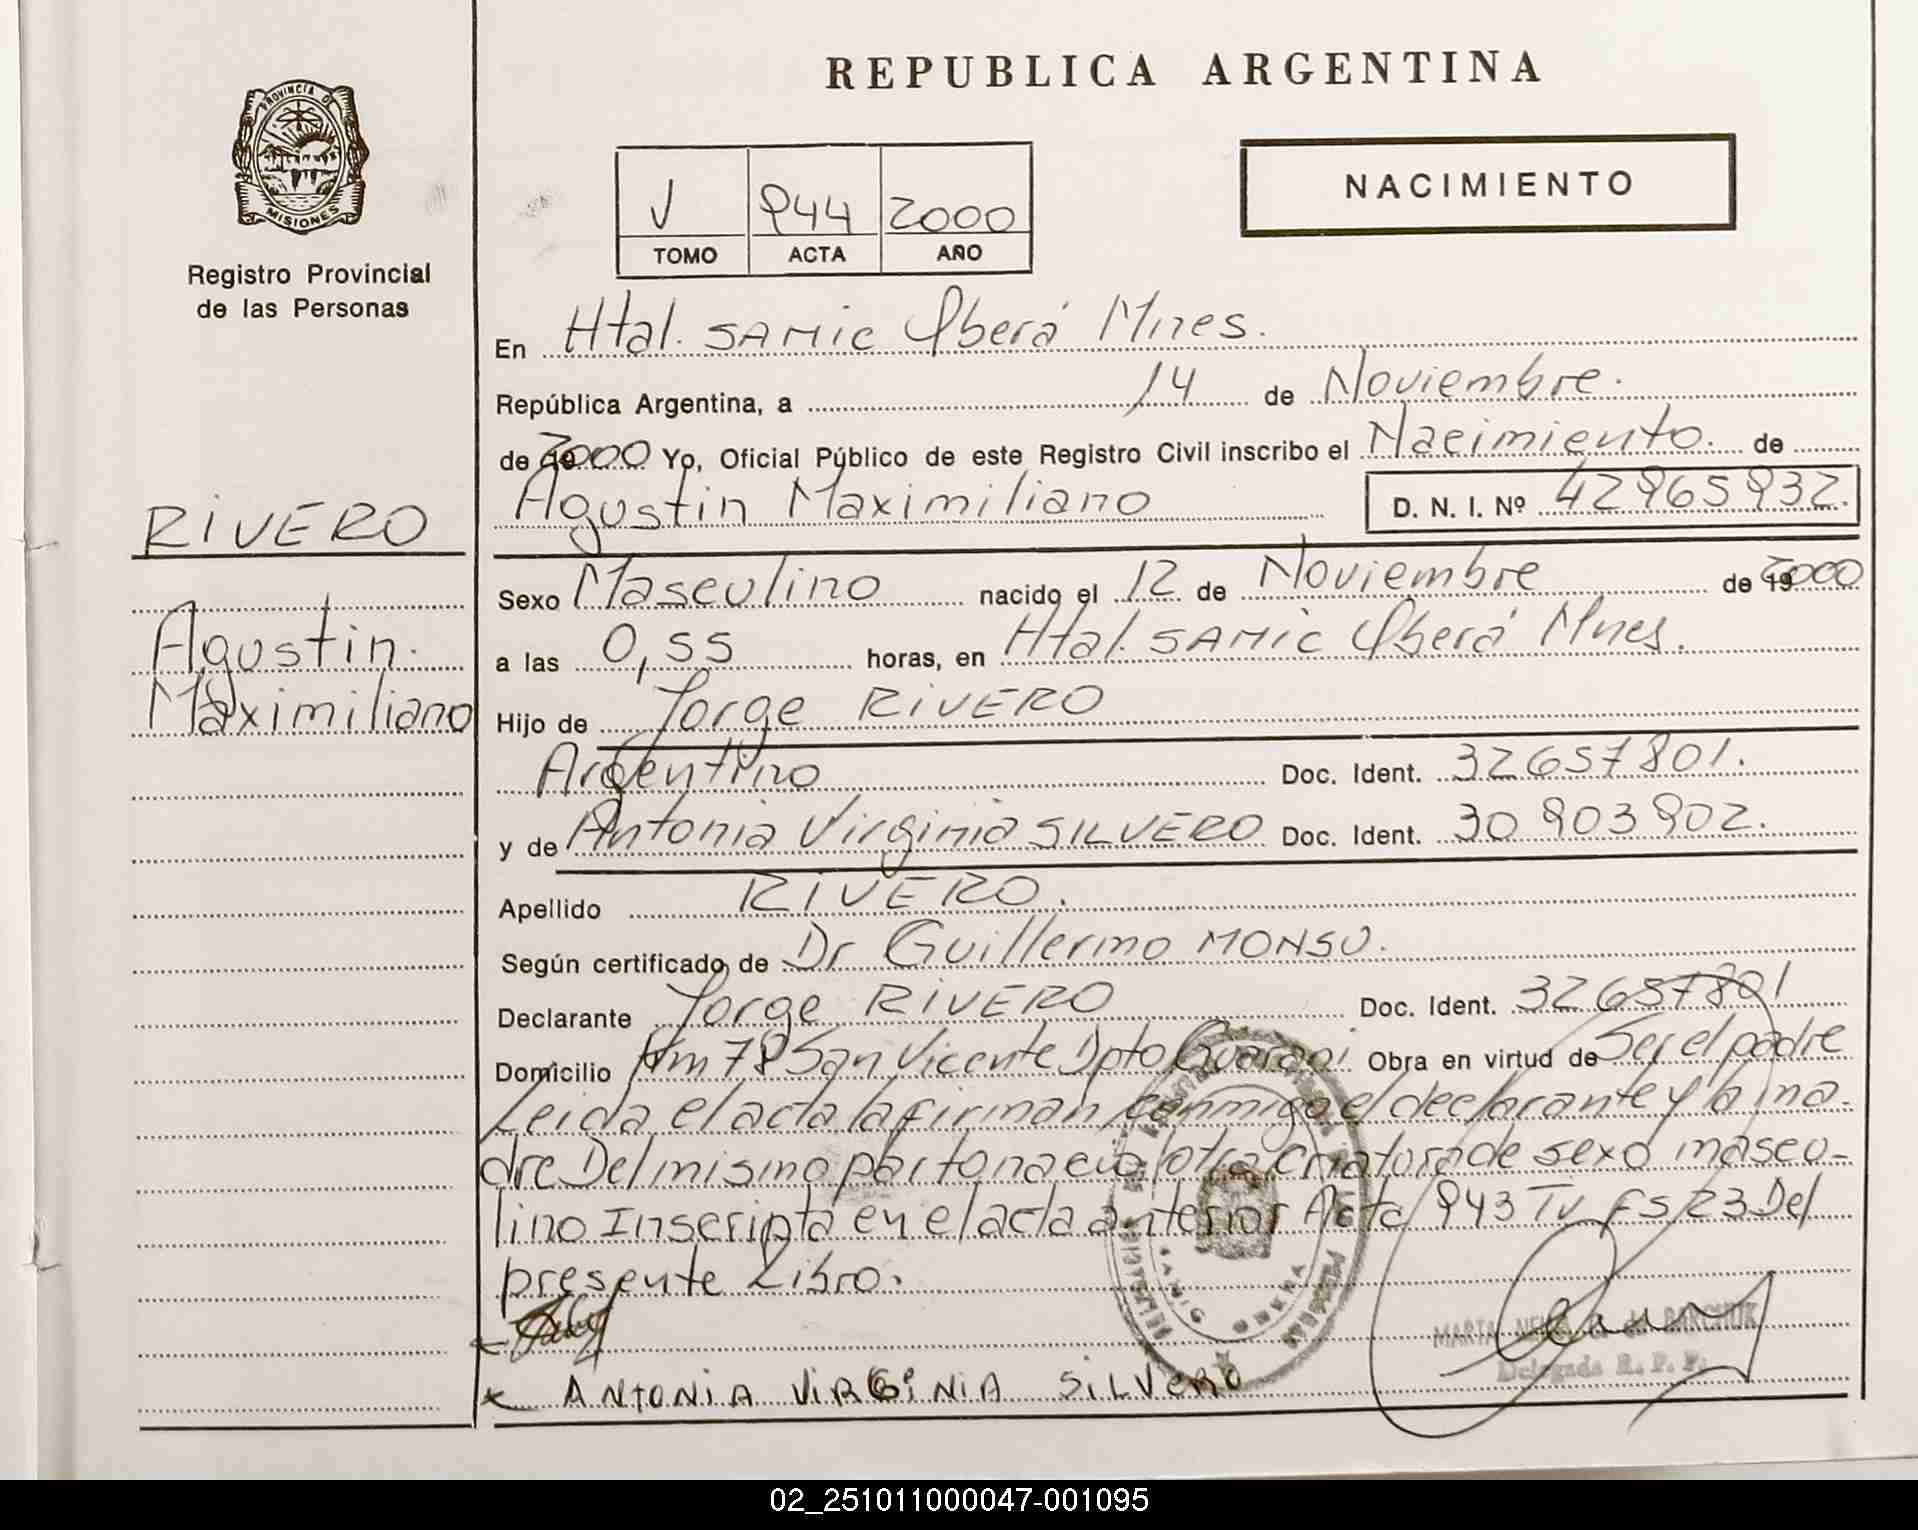 REPUBLICA ARGENTINA
PROVINCIA DE
MISIONES
Registro Provincial
de las Personas
V 944 2000
TOMO ACTA AÑO
NACIMIENTO
RIVERO
Agustin
Maximiliano
En Htal. SAMIC Oberá Mnes.
República Argentina, a 14 de Noviembre.
de 2000 Yo, Oficial Público de este Registro Civil inscribo el Nacimiento. de
Agustin Maximiliano D. N. I. Nº 42965932.
Sexo Masculino nacido el 12 de Noviembre de 19 2000
a las 0,55 horas, en Htal. SAMIC Oberá Mnes.
Hijo de Jorge RIVERO
Argentino Doc. Ident. 32657801.
y de Antonia Virginia SILVERO Doc. Ident. 30903902.
Apellido RIVERO.
Según certificado de Dr Guillermo MONSU.
Declarante Jorge RIVERO Doc. Ident. 32657801
Domicilio Km 78 San Vicente Dpto Guarani Obra en virtud de Ser el padre
Leida el acta la firman conmigo el declarante y la ma-
dre Del mismo parto nacio otra criatura de sexo mascu-
lino Inscripta en el acta anterior Acta 943 TV FS 23 Del
presente Libro.
SAMIC OBERA
MARTA
BARCHUK
Delegada R. P. P.
x ANTONIA VIRGINIA SILVERO
02_251011000047-001095